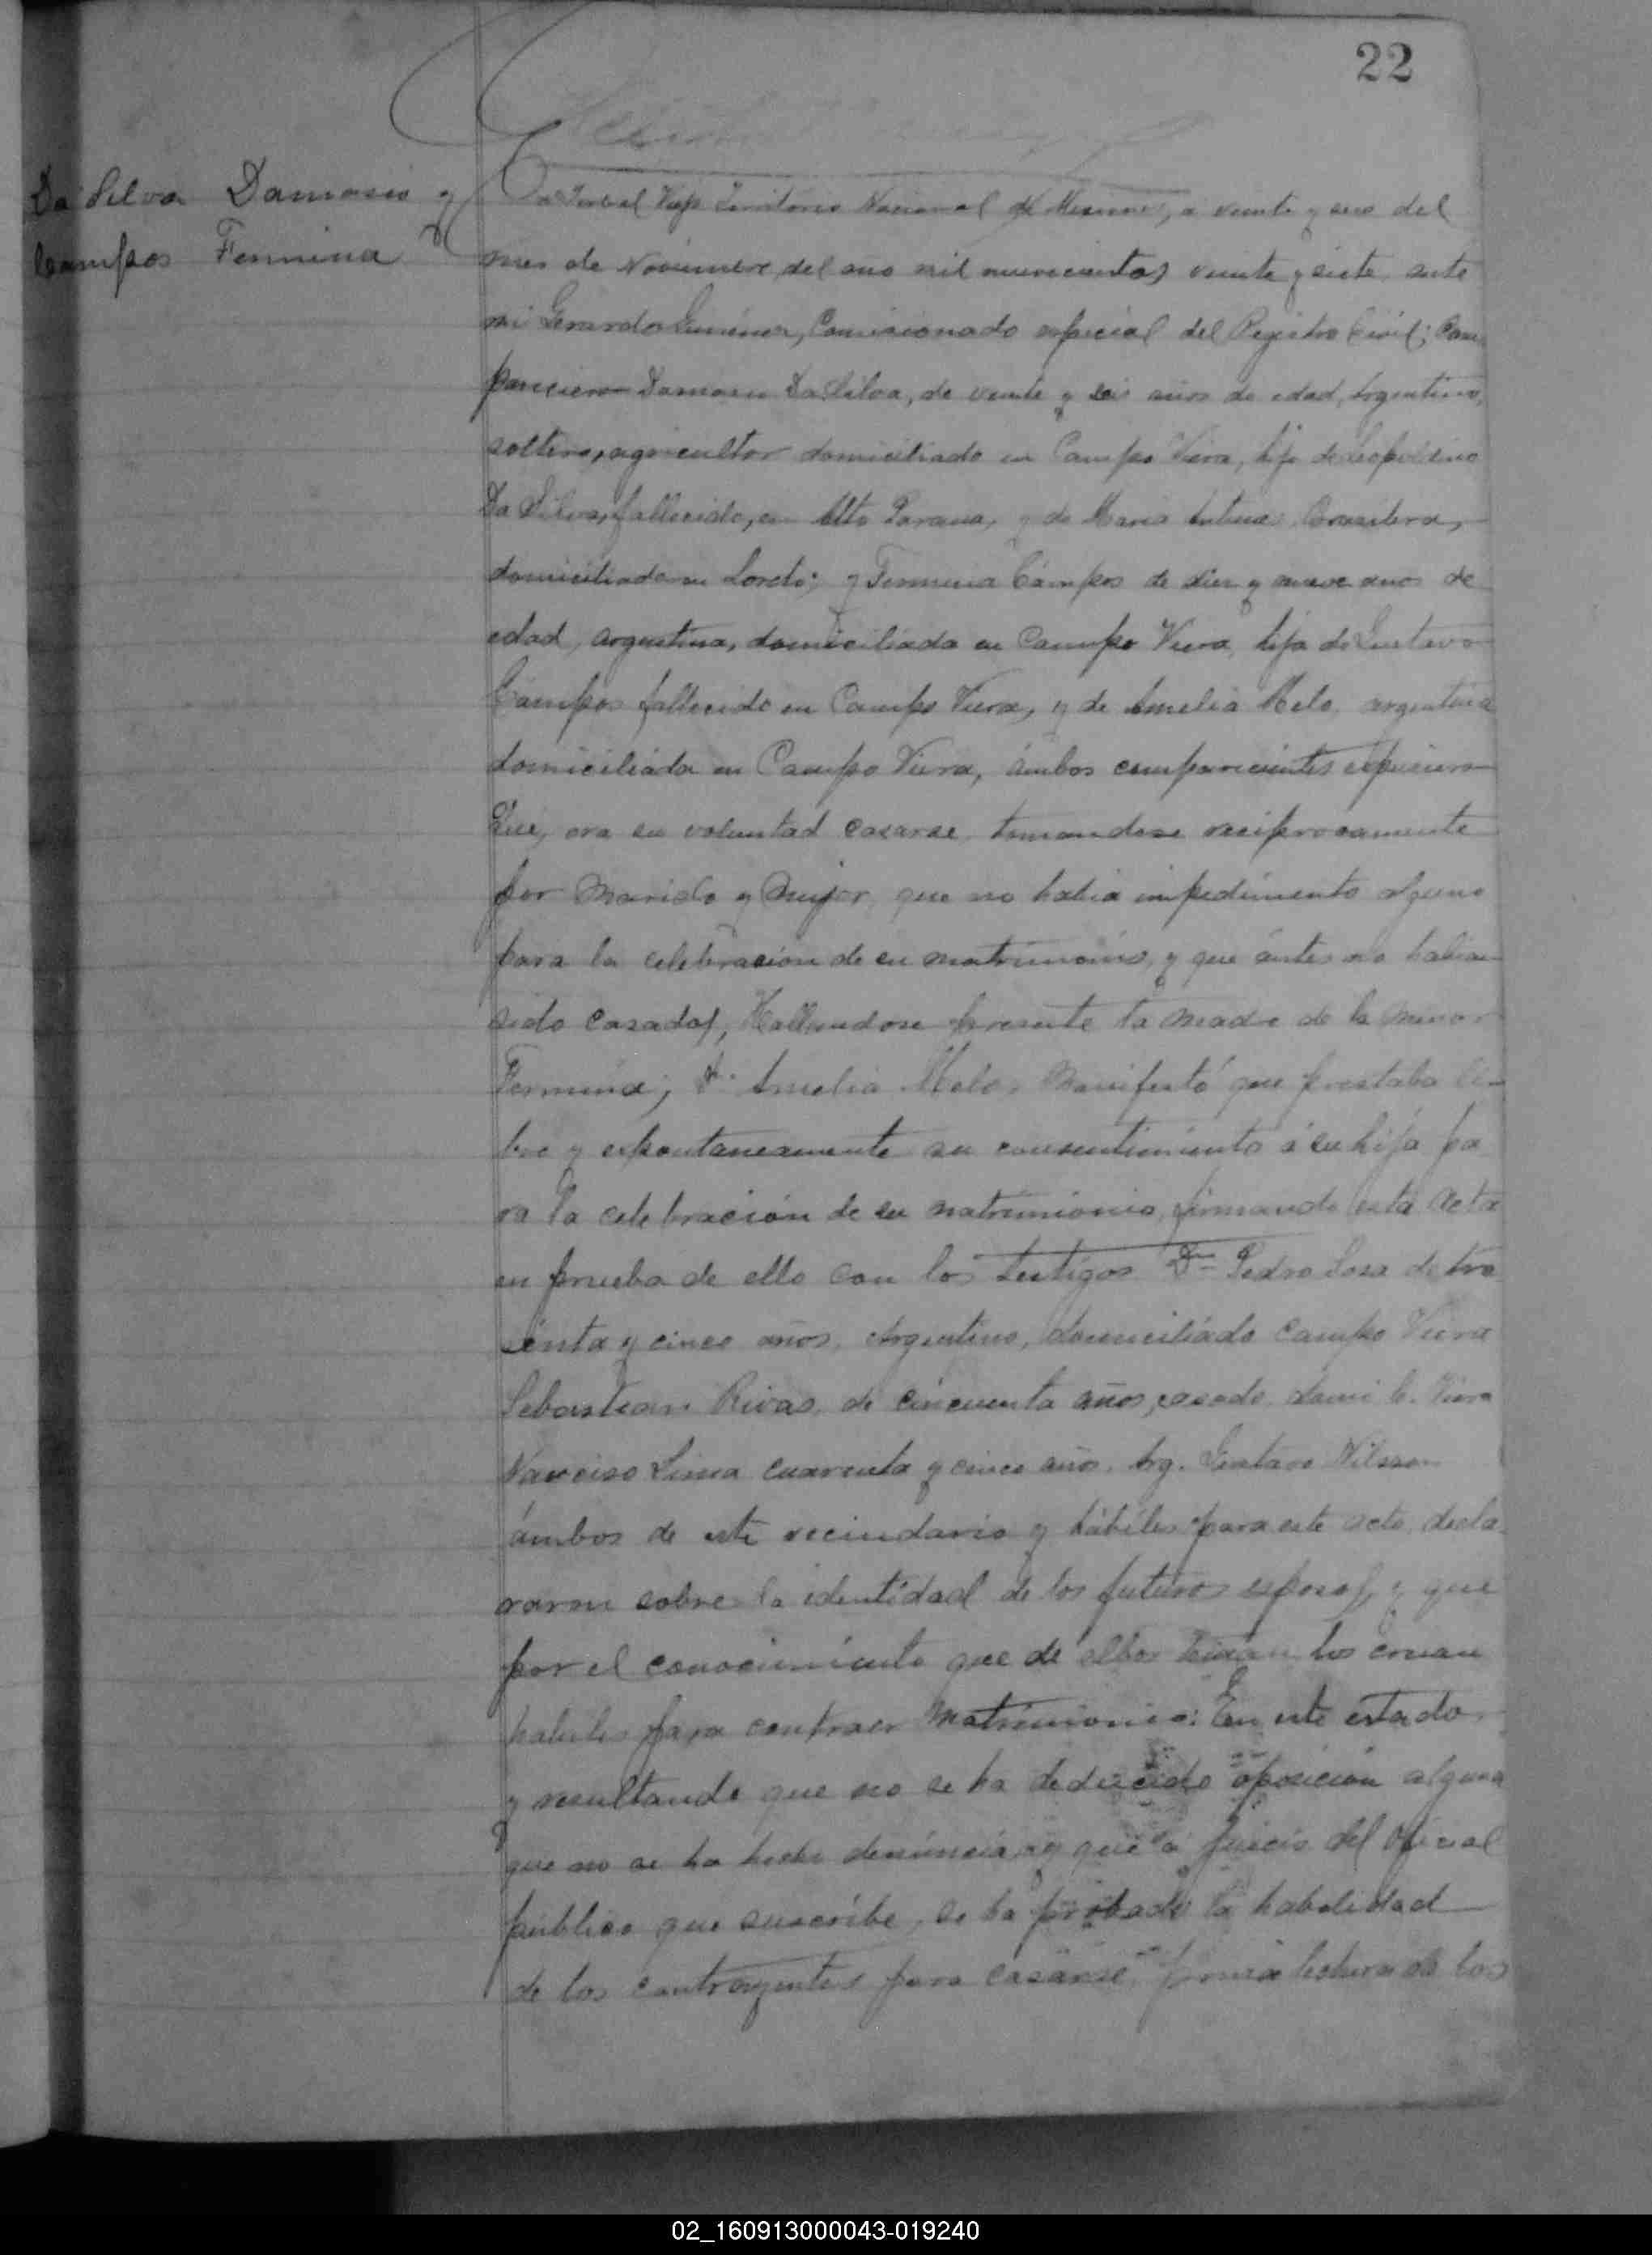 22
Da Silva Damasio y
Campos Fermina
En Yerbal Viejo Territorio Nacional de Misiones, a veinte y seis del
mes de Noviembre del año mil novecientos veinte y siete, ante
mi Gerardo Gimenez, Comisionado especial del Registro Civil; Com
parecieron Damasio Da Silva, de veinte y seis años de edad, Argentino,
soltero, agricultor domiciliado en Campo Viera, hijo de Leopoldino
Da Silva, fallecido, en Alto Parana, y de Maria Brasilera,
domiciliada en Loreto; y Fermina Cámpos de diez y nueve anos de
edad, argentina, domiciliada en Campo Viera, hija de Gustavo
Cámpos fallecido en Campo Viera, y de Amelia Melo, argentina
domiciliada en Campo Viera, ámbos comparecientes expusieron
Que, era su voluntad casarse, tomandose reciprocamente
por Marido y Mujer, que no habia impedimento alguno
para la celebración de su matrimonio, y que ántes no habian
sido casados, Hallandose presente la Madre de la menor
Fermina; Da. Amelia Melo, Manifestó que prestaba li-
bre y espontaneamente su consentimiento á su hija pa
ra la celebración de su matrimonio, firmando esta Acta
en prueba de ello con los testigos Dn Pedro Sosa de tre
inta y cinco años, Argentino, domiciliádo Campo Viera
Sebastian Rivas, de cincuenta años, casado, domi C. Viera
Narciso Lima cuarenta y cinco años. Arg. Gustavo Nilsson
ámbos de este vecindario y hábiles para este acto, decla
raron sobre la identidad de los futuros esposos, y que
por el conocimiento que de ellos tenian los creian
habiles para contraer Matrimonio: En este estado
y resultando que no se ha deducido oposición alguna
que no se ha hecho denúncia, y que a juicio del Oficial
público que suscribe, se ha probado la habilidad
de los contrayentes para casarse, previa lectura de los
02_160913000043-019240